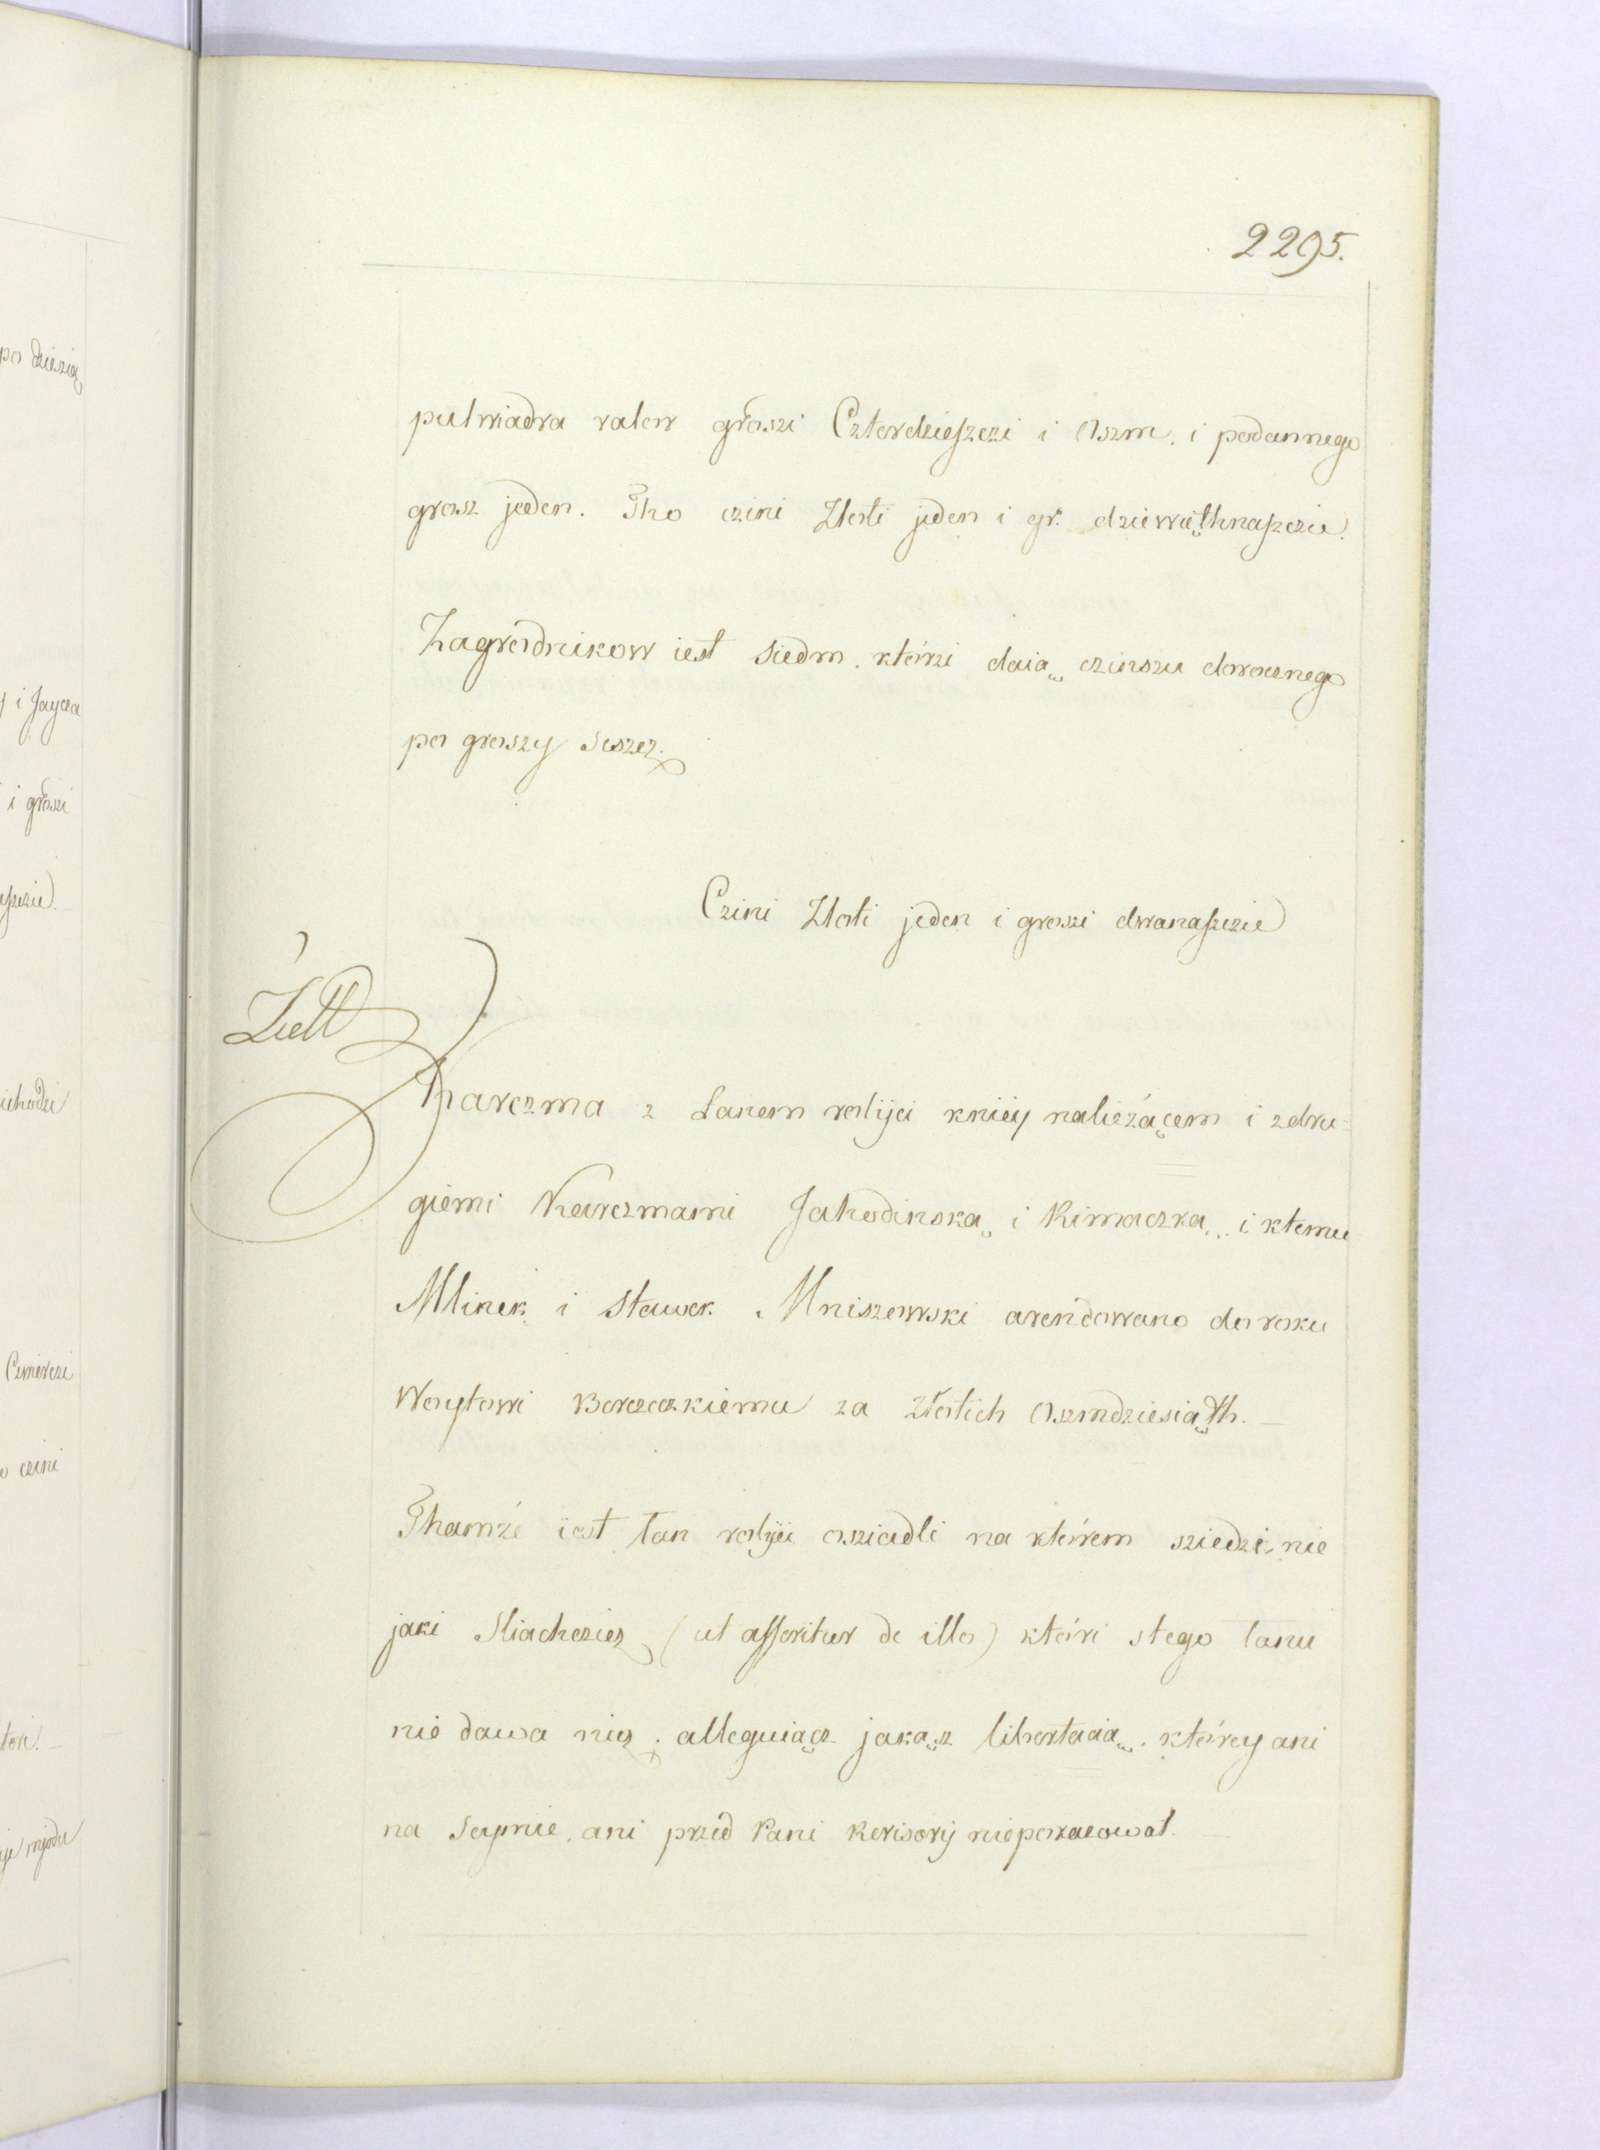 2295.
pulwiadra valor groszi Czterdzieszczi i Oszm. i podannego
grosz jeden. Tho czini Zloti jeden i gr. dziewiąthnaszczie.
Zagrodnikow iest siedm. którzi daią czinszu dorocznego
po groszy szescz.
Czini Zloti jeden i groszi dwanaszczie
Karczma z Łanem rolijei kniéy nalieżącem i zdru-
giemi Karczmami Jahodinską i Rimaczką, i ktemu
Mlinek i Stawek Mniszewski arendowano do roku
Woytowi Borzeczkiemu za złotich Oszmdziesiąth.
Thamże iest łan rolijei osziadli na którem sziedzi nie
jaki Sliachcicz (ut asseritur de illo) któri stego łanu
nie dawa nicz. alleguiącz jakąsz libertacią, którey ani
na Seymie, ani przed Pani Revisorij niepokazował.
po dziesią
i Jaycza
i groszi
czini